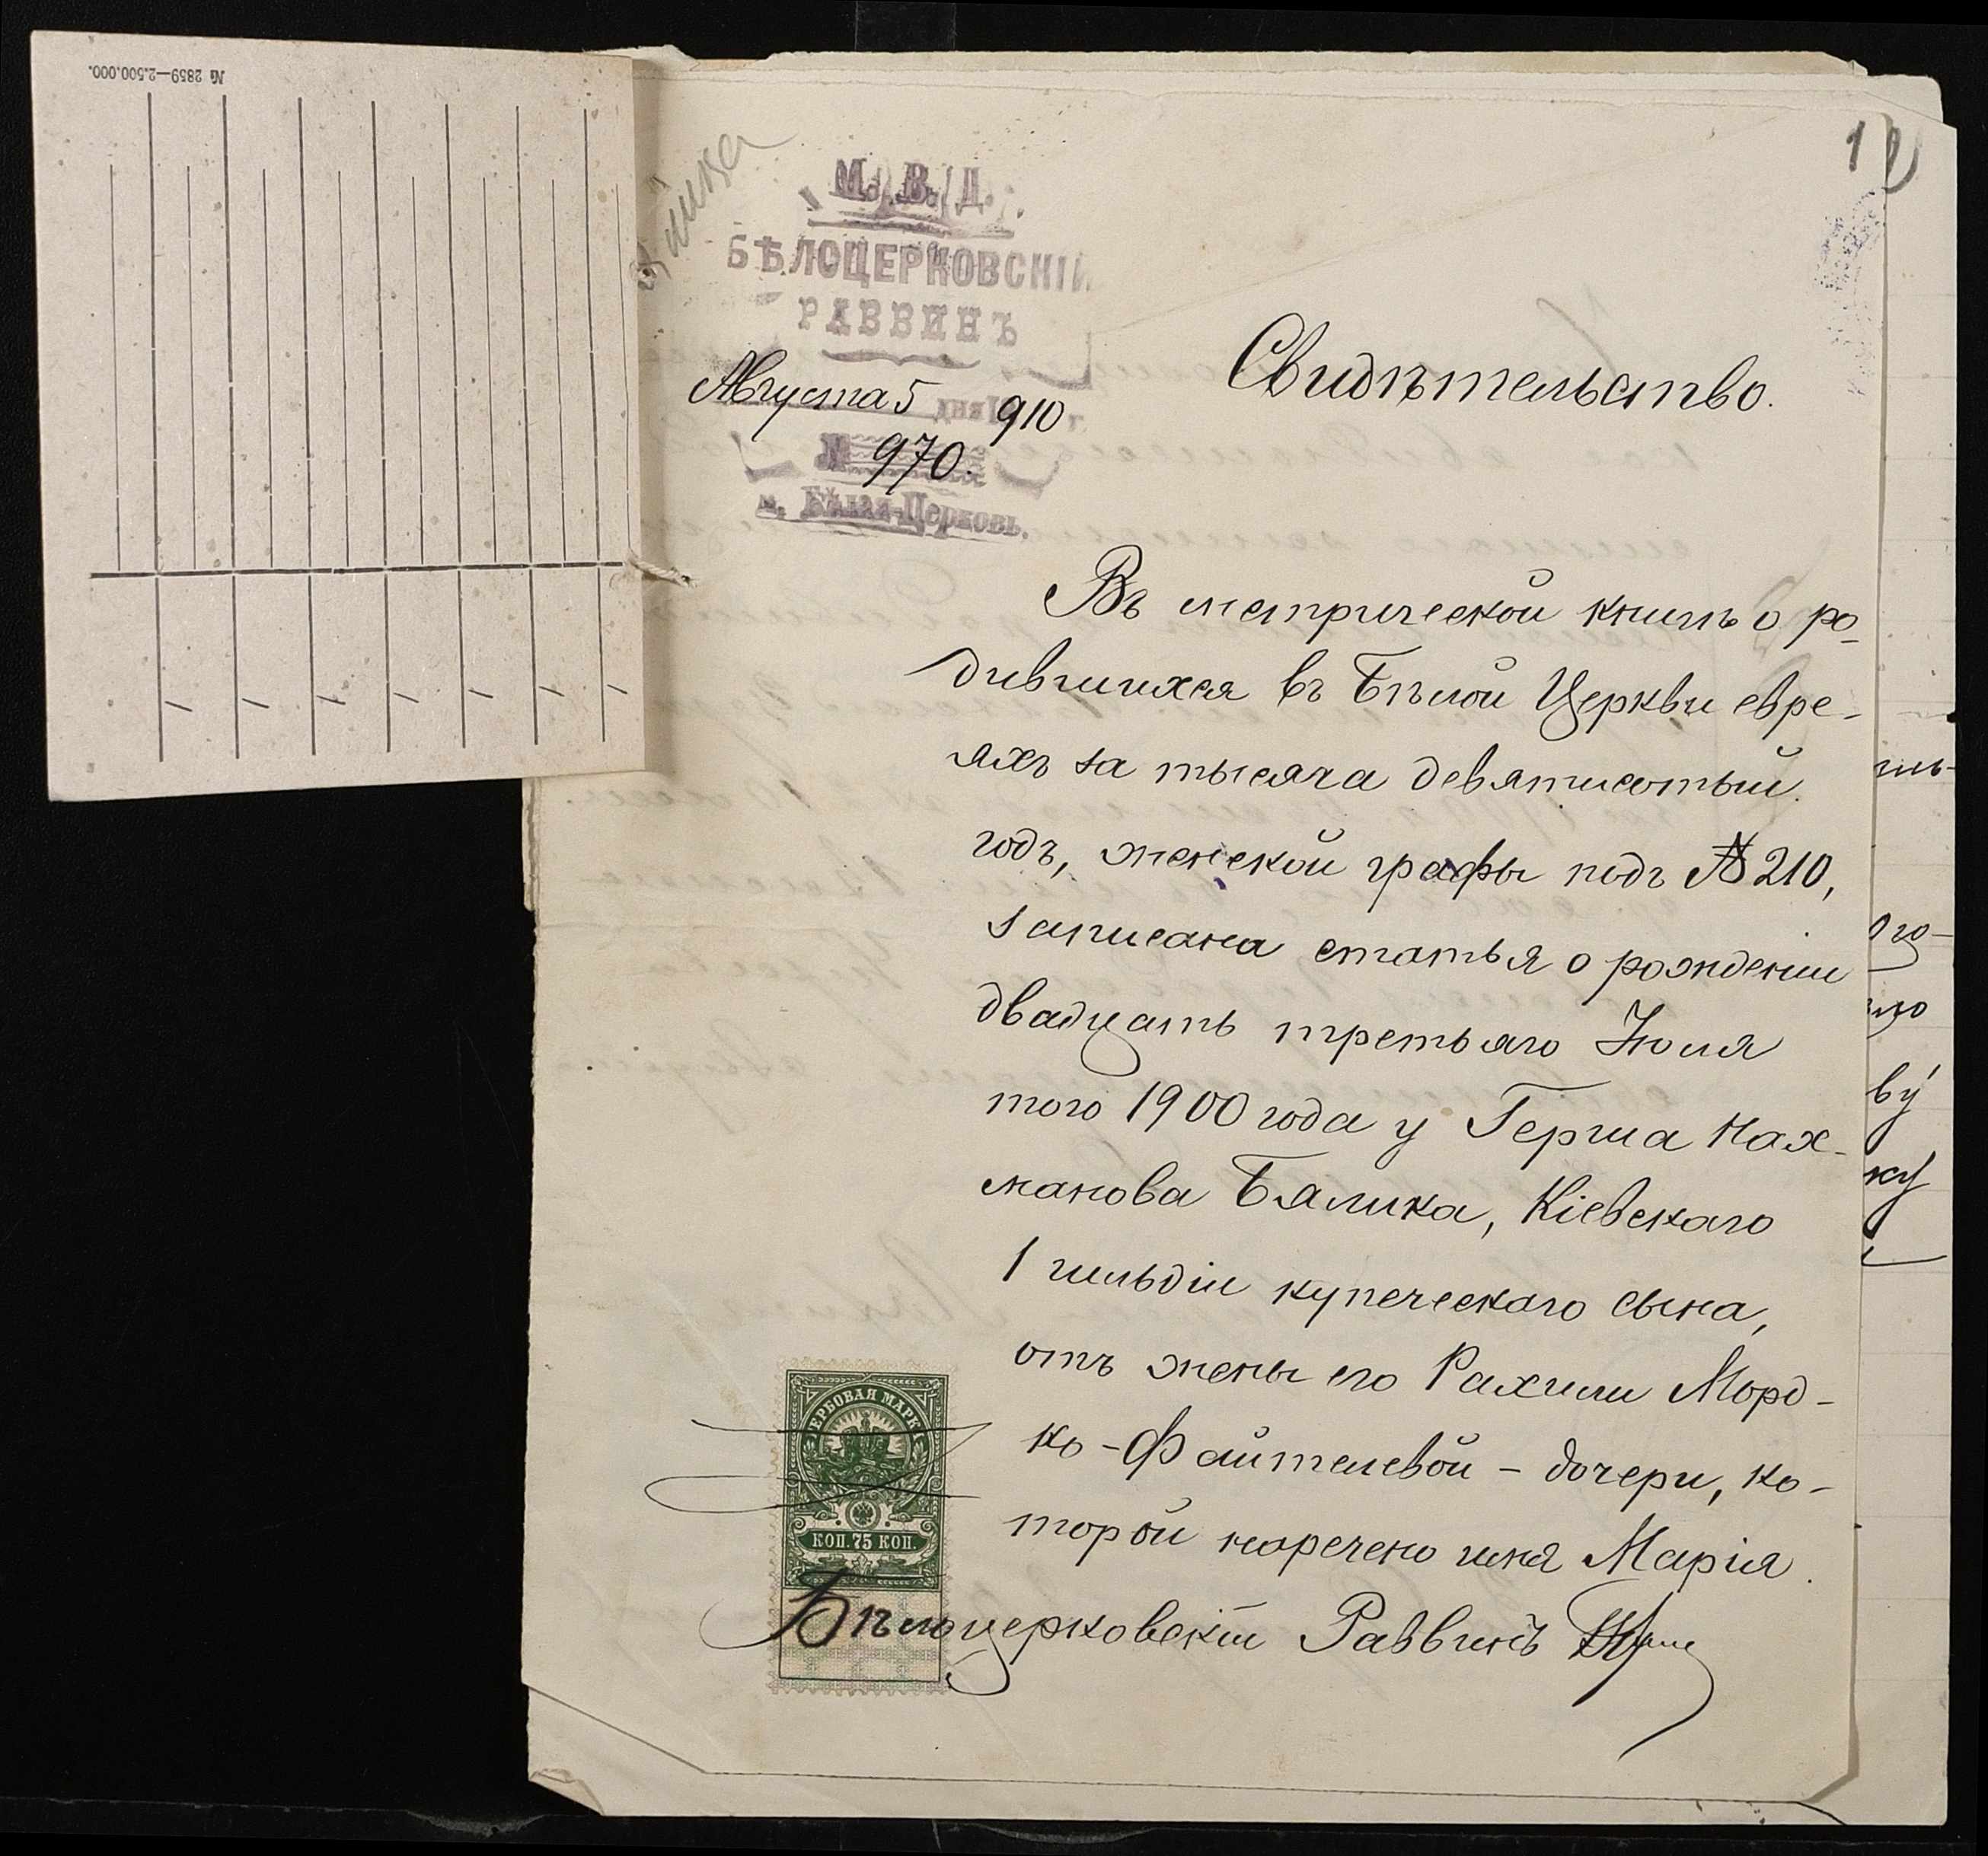 № 2859—2.500.000.
1
М. В. Д.
БѢЛОЦЕРКОВСКІЙ
РАВВИНЪ
Августа 5 дня 1910 г.
№ 970.
м. Бѣлая-Церковь.
Свидѣтельство.
Въ метрической книгѣ о ро-
дившихся въ Бѣлой Церкви евре-
яхъ за тысяча девятисотый
годъ, женской графы подъ № 210,
записана статья о рожденіи
двадцать третьяго Іюля
того 1900 года у Герша Нах-
манова Бялика, Кіевскаго
1 гильдіи купеческаго сына,
отъ жены его Рахили Морд-
ко-Файтелевой - дочери, ко-
торой наречено имя Марія.
ГЕРБОВАЯ МАРКА
КОП. 75 КОП.
Бѣлоцерковскій Раввинъ